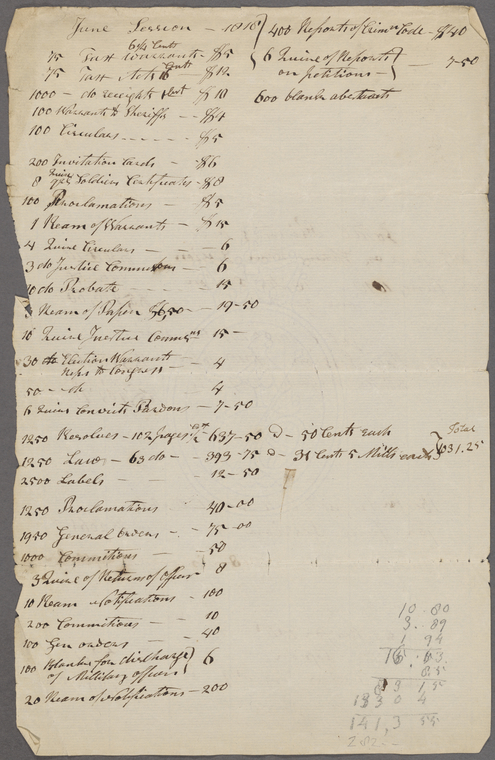 June Session - 1818
6 1/4 Cents
75 Tax Warrants - $5
75 Tax Acts 16 Cents $12
1000 - do receipts 1 Cent $10
100 Warrants to Sheriffs - $4
100 Circulars - - - - $5
200 Invitation Cards - $6
8 Quire Soldiers Certificates - $8
100 Proclamations - $5
1 Ream of Warrants - $15
4 Quire Circulars - - 6
3 do Justice Commissions - 6
10 do Probate - - 15
Ream of Paper $6,50 - 19-50
10 Quire Justice Commns 15 -
30 Election Warrants
Reps to Congress - 4
50 - do 4
6 Quires Convicts Pardons - 7-50
1250 Resolves - 102 pages 637-50 d - 50 Cents each
Total
1250 Laws - 63 do - 393-75 d - 31 Cents 5 Mills each 1031.25
2500 Labels - 12-50
1250 Proclamations 40-00
1950 General Orders - 75-00
1000 Commitions - 50
3 Quire of Returns of officers - 8
10 Ream Notifications - 100
200 Commitions - 10
100 Gen orders - 40
100 Blanks for discharge
of Military officers 6
20 Ream of Notifications - 200
400 Reports of Crimn Code - $40
6 Quire of Reports
on petitions - 7-50
600 blank abstracts
10 80
3. 89
1 94
16. 63